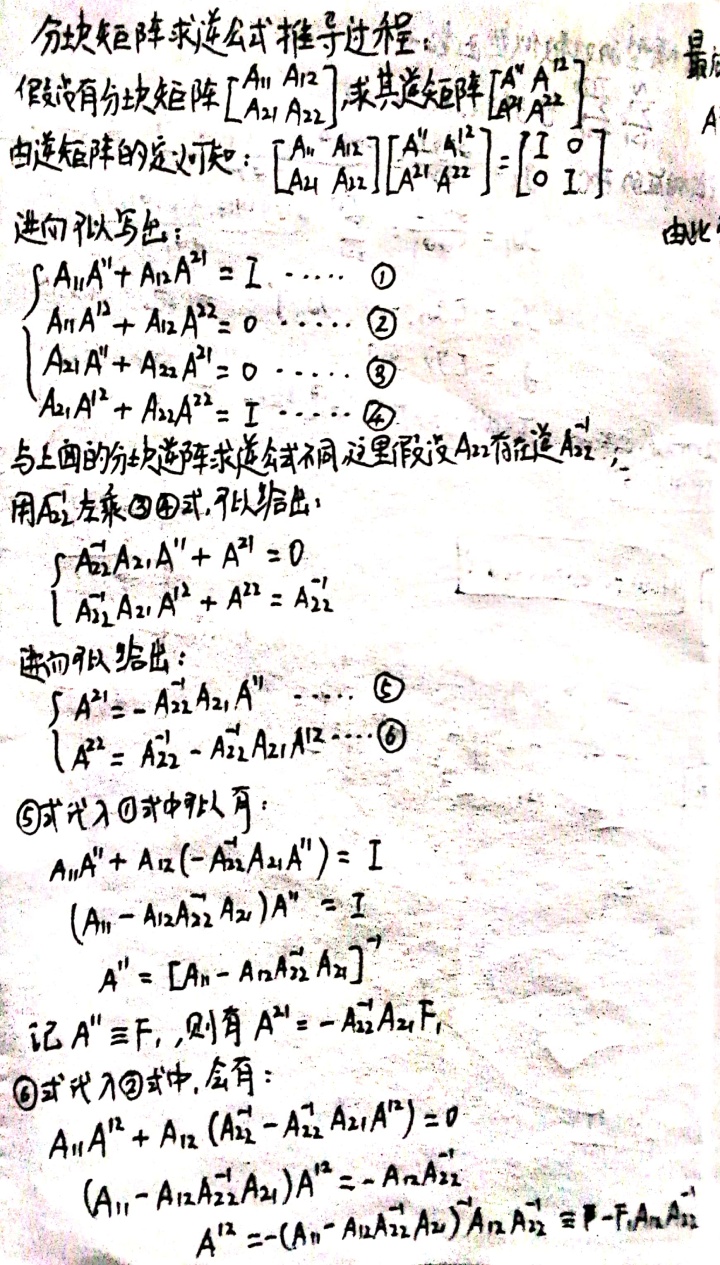 分块矩阵求逆公式推导过程:
假设有分块矩阵[A₁₁ A₁₂ A₂₁ A₂₂],求其逆矩阵[A¹¹ A¹² A²¹ A²²]
由逆矩阵的定义可知: [A₁₁ A₁₂ A₂₁ A₂₂][A¹¹ A¹² A²¹ A²²]=[I 0 0 I]
进而可以写出:
A₁₁A¹¹ + A₁₂A²¹ = I ······ ①
A₁₁A¹² + A₁₂A²² = 0 ······ ②
A₂₁A¹¹ + A₂₂A²¹ = 0 ······ ③
A₂₁A¹² + A₂₂A²² = I ······ ④
与上面的分块逆阵求逆公式不同,这里假设A₂₂存在逆A₂₂⁻¹,
用A₂₂⁻¹左乘③④式,可以给出:
A₂₂⁻¹A₂₁A¹¹ + A²¹ = 0
A₂₂⁻¹A₂₁A¹² + A²² = A₂₂⁻¹
进而可以给出:
A²¹ = -A₂₂⁻¹A₂₁A¹¹ ······ ⑤
A²² = A₂₂⁻¹ - A₂₂⁻¹A₂₁A¹² ···· ⑥
⑤式代入①式中可以有:
A₁₁A¹¹ + A₁₂(-A₂₂⁻¹A₂₁A¹¹) = I
(A₁₁ - A₁₂A₂₂⁻¹A₂₁)A¹¹ = I
A¹¹ = [A₁₁ - A₁₂A₂₂⁻¹A₂₁]⁻¹
记A¹¹≡F₁,则有A²¹ = -A₂₂⁻¹A₂₁F₁
⑥式代入②式中,会有:
A₁₁A¹² + A₁₂(A₂₂⁻¹ - A₂₂⁻¹A₂₁A¹²) = 0
(A₁₁ - A₁₂A₂₂⁻¹A₂₁)A¹² = -A₁₂A₂₂⁻¹
A¹² = -(A₁₁ - A₁₂A₂₂⁻¹A₂₁)⁻¹A₁₂A₂₂⁻¹ ≡ -F₁A₁₂A₂₂⁻¹
最
A
由此